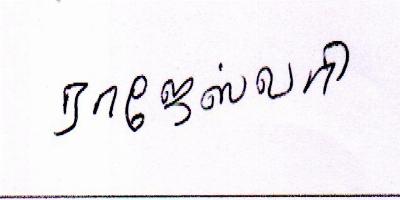 ராஜேஸ்வரி